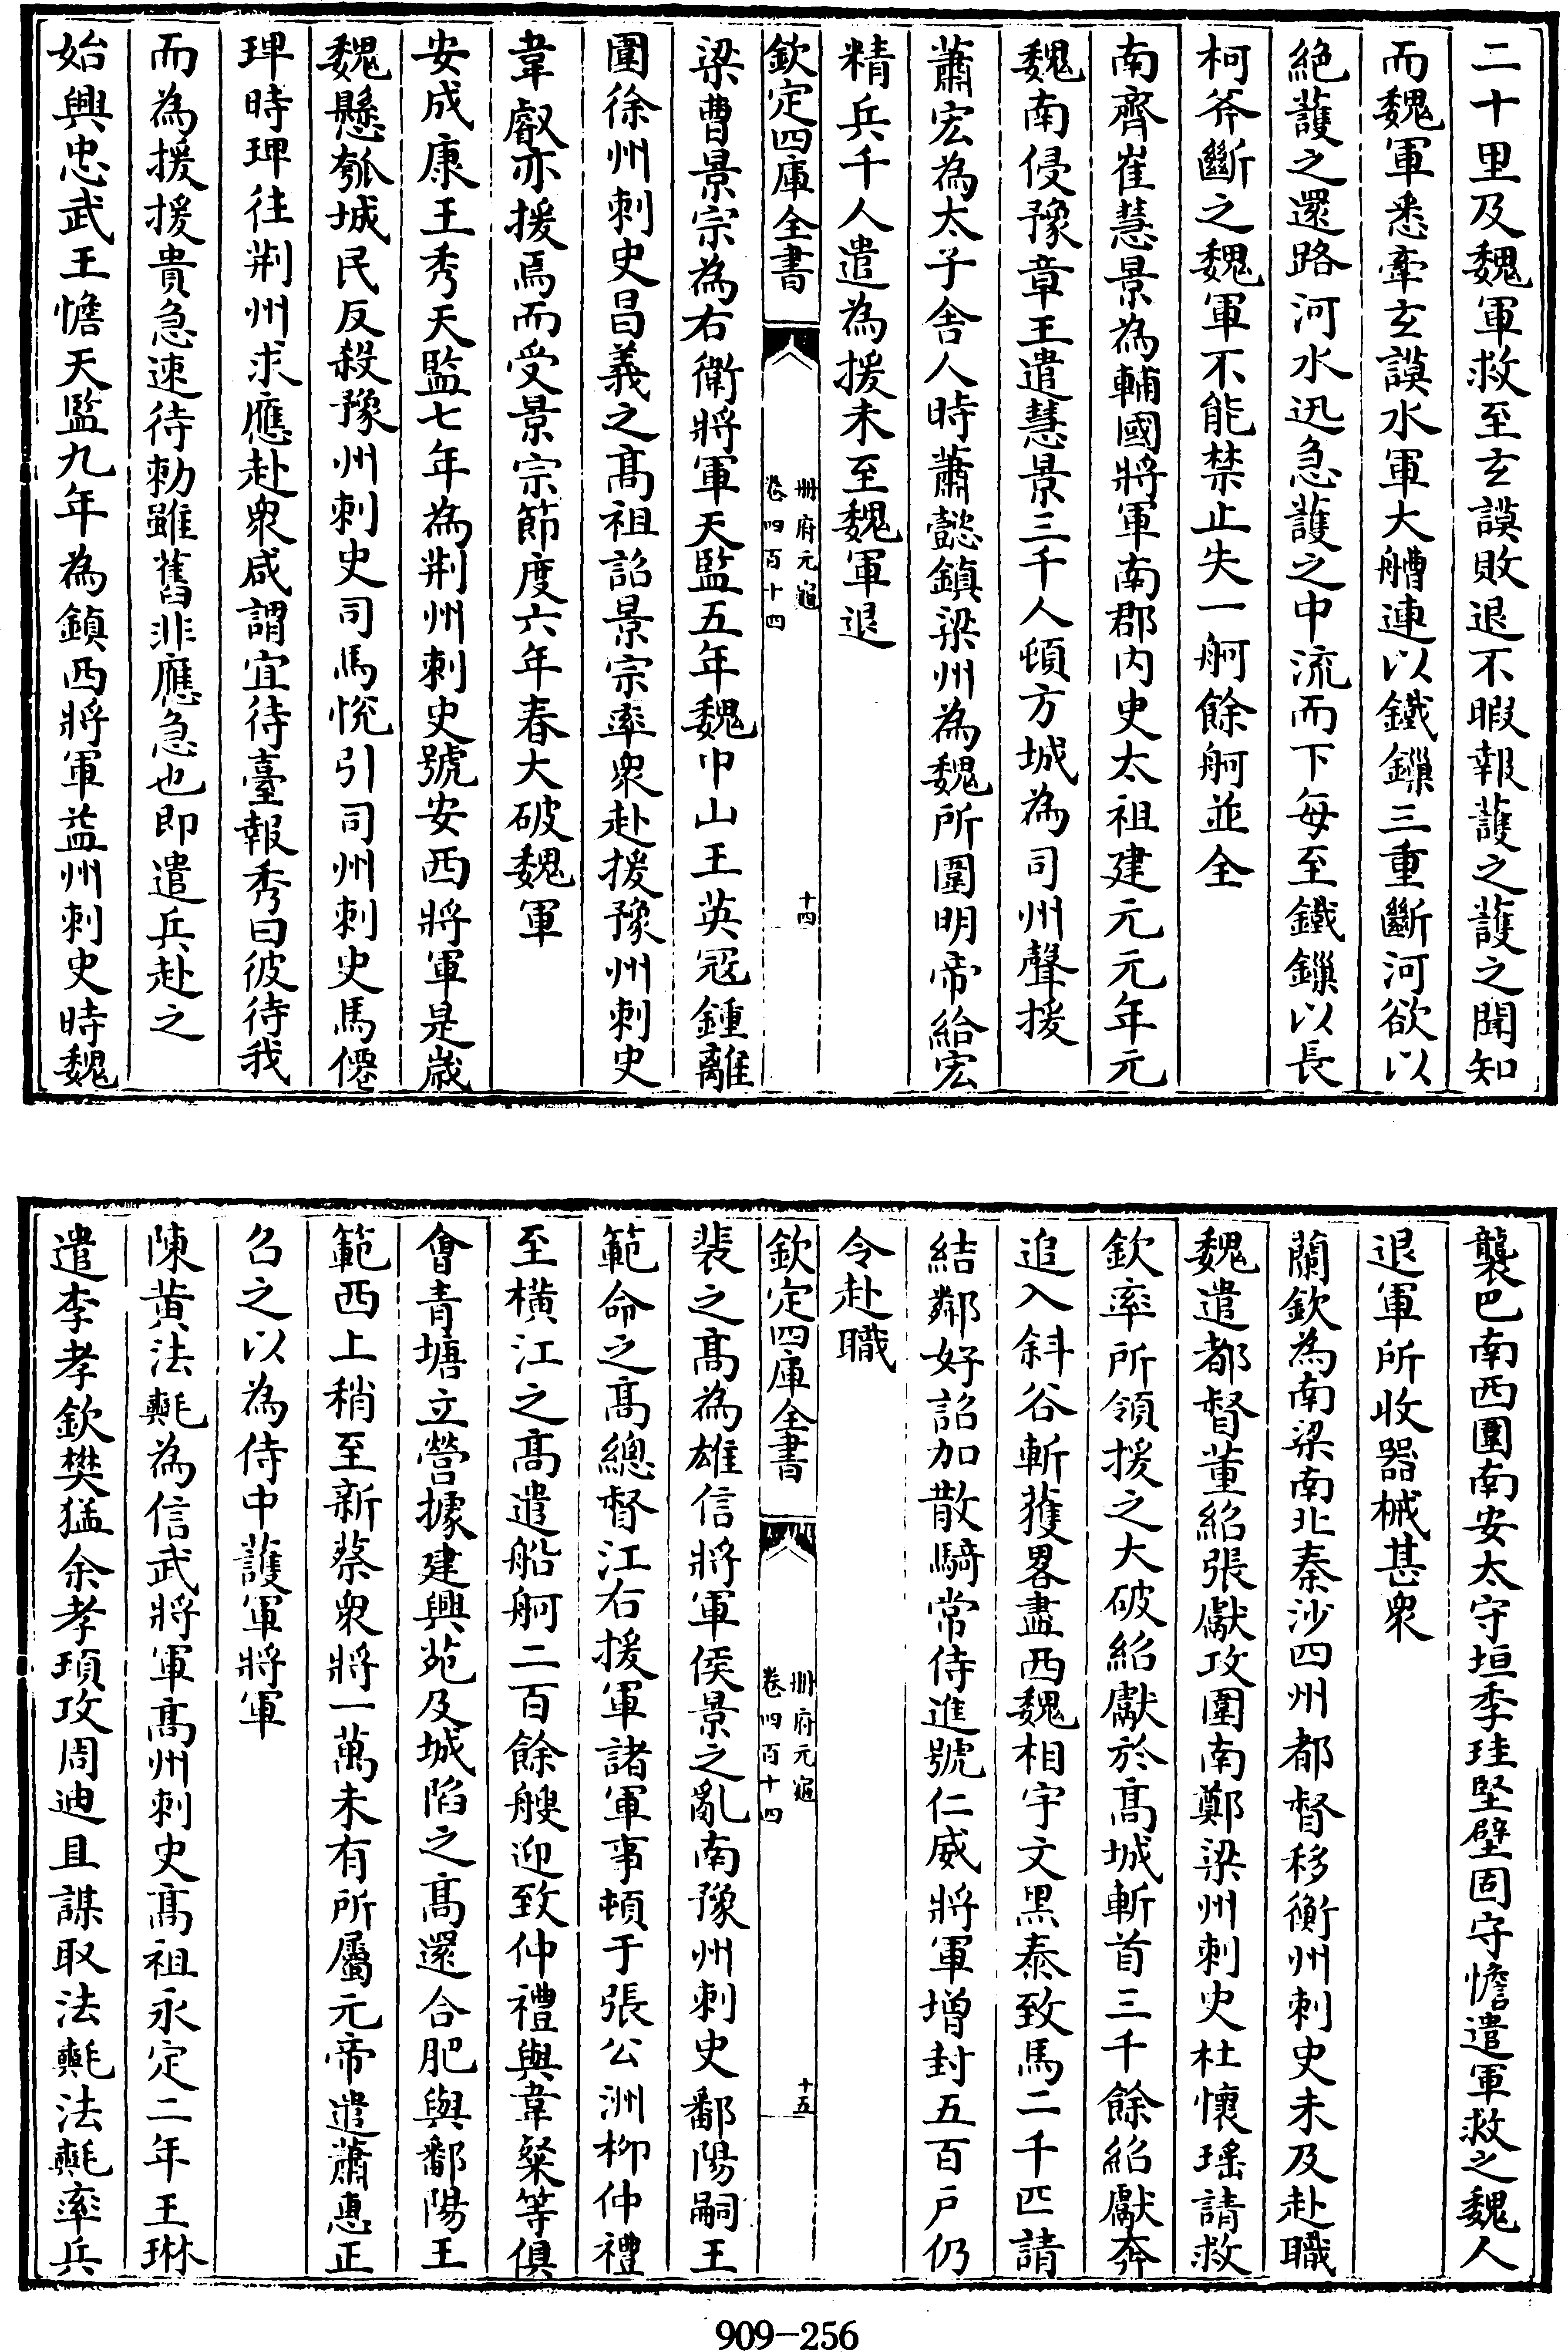 二十里及魏軍救至玄謨敗退不暇報護之護之聞知
而魏軍悉牽玄謨水軍大艚連以鐵鏁三重斷河欲以
絶護之還路河水迅急護之中流而下每至鐵鏁以長
柯斧斷之魏軍不能禁止失一舸餘舸並全
南齊崔慧景為輔國將軍南郡内史太祖建元元年元
魏南侵豫章王遣慧景三千人頓方城為司州聲援
蕭宏為太子舍人時蕭懿鎮梁州為魏所圍明帝給宏
精兵千人遣為援未至魏軍退
欽定四庫全書
冊府元龜
卷四百十四
十四
梁曹景宗為右衛將軍天監五年魏中山王英冦鍾離
圍徐州刺史昌義之髙祖詔景宗率衆赴援豫州刺史
韋叡亦援焉而受景宗節度六年春大破魏軍
安成康王秀天監七年為荆州刺史號安西將軍是歳
魏懸瓠城民反殺豫州刺史司馬悅引司州刺史馬僊
琕時琕往荆州求應赴衆咸謂宜待臺報秀曰彼待我
而為援援貴急速待勅雖舊非應急也即遣兵赴之
始興忠武王憺天監九年為鎮西將軍益州刺史時魏
襲巴南西圍南安太守垣季珪堅壁固守憺遣軍救之魏人
退軍所收器械甚衆
蘭欽為南梁南北秦沙四州都督移衡州刺史未及赴職
魏遣都督董紹張獻攻圍南鄭梁州刺史杜懷瑤請救
欽率所領援之大破紹獻於髙城斬首三千餘紹獻奔
追入斜谷斬獲畧盡西魏相宇文黒泰致馬二千匹請
結鄰好詔加散騎常侍進號仁威將軍増封五百戶仍
令赴職
欽定四庫全書
冊府元龜
卷四百十四
十五
裴之髙為雄信將軍侯景之亂南豫州刺史鄱陽嗣王
範命之髙總督江右援軍諸軍事頓于張公洲柳仲禮
至横江之髙遣船舸二百餘艘迎致仲禮與韋粲等俱
會青塘立營據建興苑及城陷之髙還合肥與鄱陽王
範西上稍至新蔡衆將一萬未有所屬元帝遣蕭惠正
召之以為侍中護軍將軍
陳黄法𣰰為信武將軍髙州刺史髙祖永定二年王琳
遣李孝欽樊猛余孝頊攻周迪且謀取法𣰰法𣰰率兵
909-256